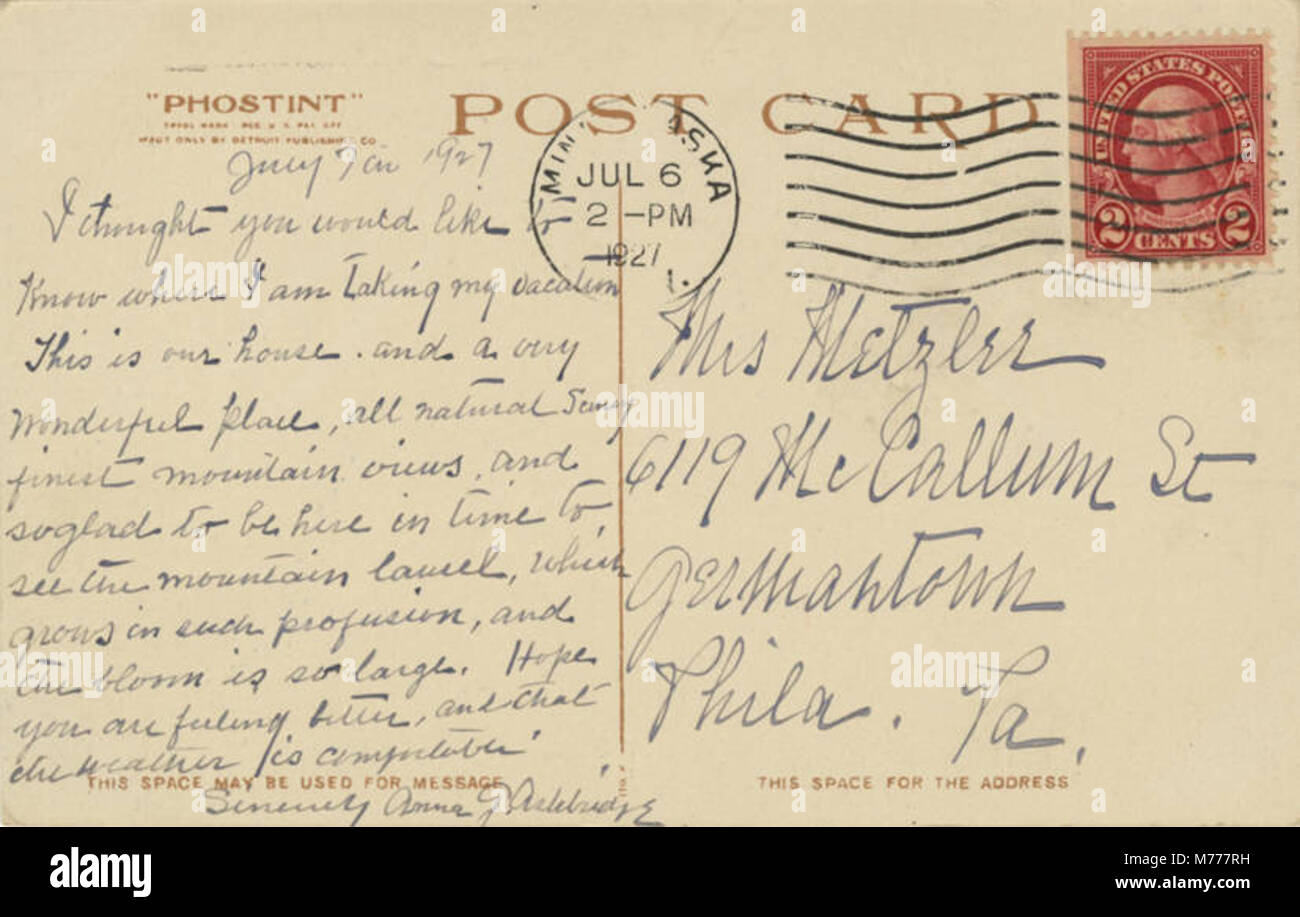 "PHOSTINT"
TRADE MARK REG. U.S. PAT. OFF.
MADE ONLY BY DETROIT PUBLISHING CO
POST CARD
JUL 6
2-PM
1927
UNITED STATES POSTAGE
2 CENTS 2
July 1927
I thought you would like to
Know where I am taking my vacation
This is our house. and a very
Wonderful place, all natural Scenery
finest mountain views, and
so glad to be here in time to,
see the mountain laurel, which
grows in such profusion, and
the bloom is so large. Hope
you are feeling better, and that
the weather is comfortable.
Sincerely Anna J. Ashbridge
Mrs Metzler
6119 McCallum St
Germantown
Phila. Pa,
THIS SPACE MAY BE USED FOR MESSAGE
THIS SPACE FOR THE ADDRESS
alamy
alamy
M777RH
www.alamy.com